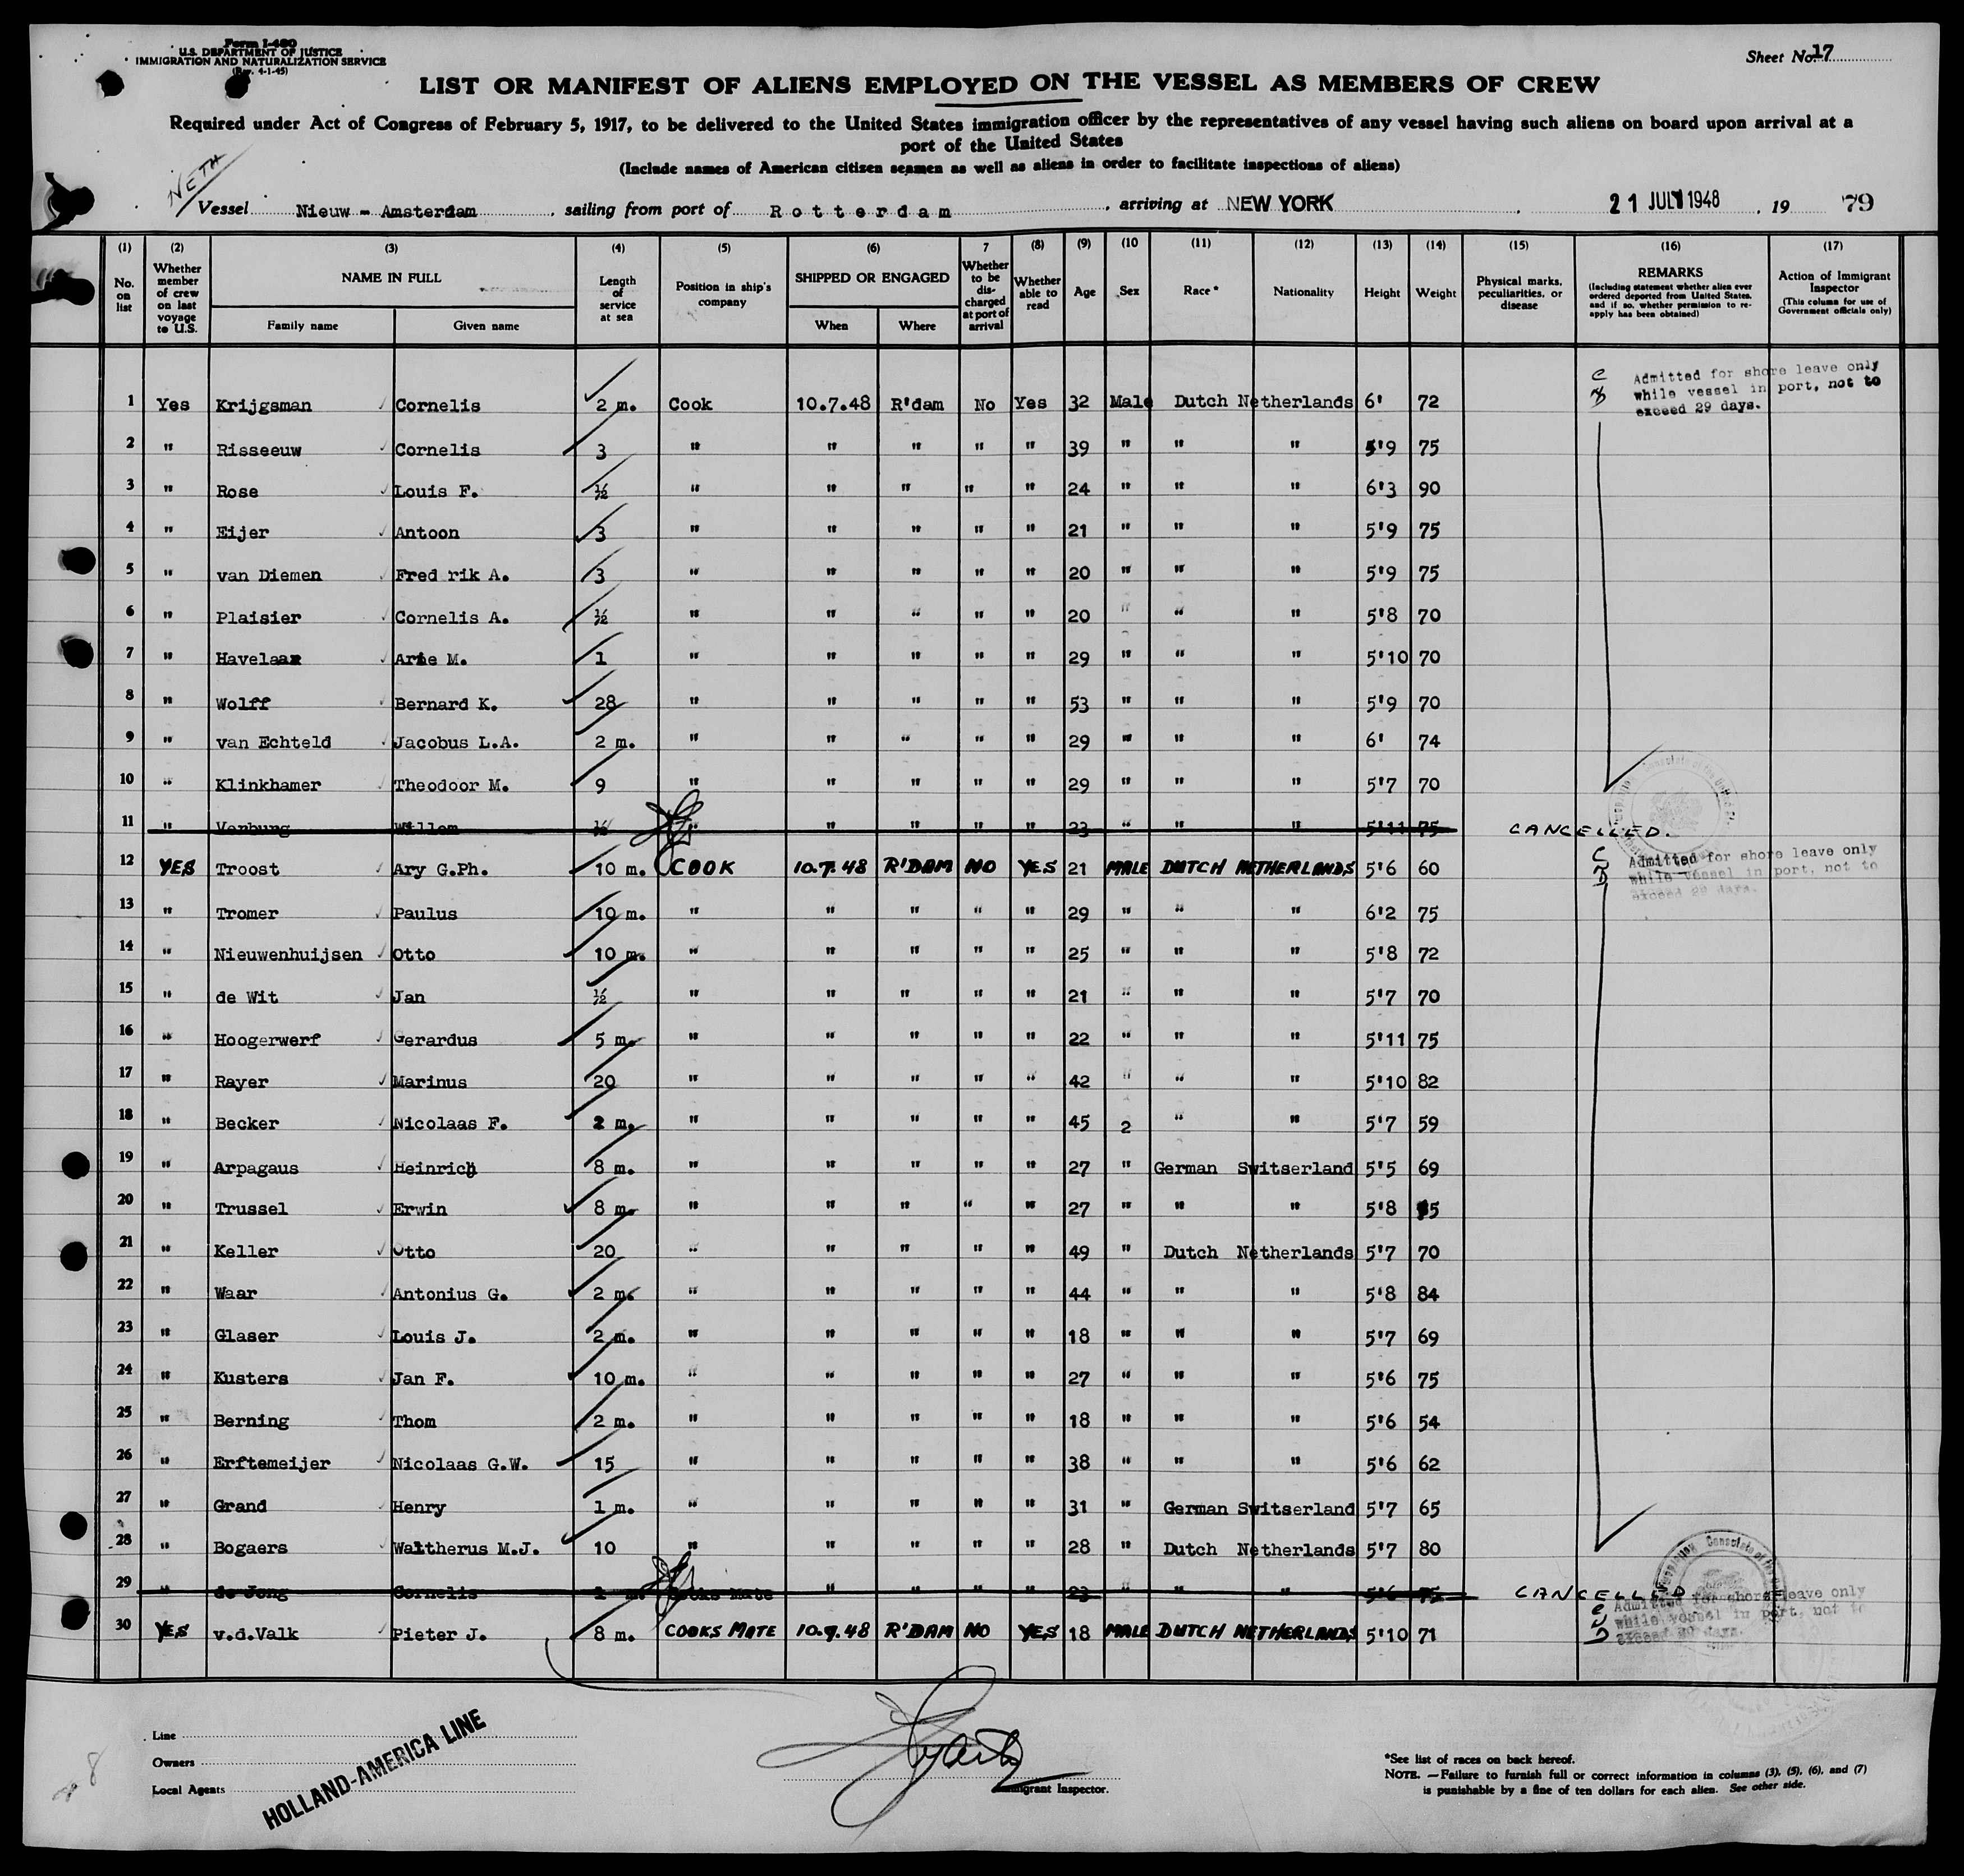 Form I-480
U.S. DEPARTMENT OF JUSTICE
IMMIGRATION AND NATURALIZATION SERVICE
(Rev. 4-1-45)
Sheet No. 17
LIST OR MANIFEST OF ALIENS EMPLOYED ON THE VESSEL AS MEMBERS OF CREW
Required under Act of Congress of February 5, 1917, to be delivered to the United States immigration officer by the representatives of any vessel having such aliens on board upon arrival at a
port of the United States
(Include names of American citizen seamen as well as aliens in order to facilitate inspections of aliens)
NETH
Vessel Nieuw - Amsterdam, sailing from port of Rotterdam, arriving at NEW YORK, 21 JULY 1948, 19 79
(1) (2) (3) (4) (5) (6) 7 (8) (9) (10 (11) (12) (13) (14) (15) (16) (17)
No. on list
Whether member of crew on last voyage to U.S.
NAME IN FULL
Family name Given name
Length of service at sea
Position in ship's company
SHIPPED OR ENGAGED
When Where
Whether to be discharged at port of arrival
Whether able to read
Age
Sex
Race *
Nationality
Height
Weight
Physical marks, peculiarities, or disease
REMARKS
(Including statement whether alien ever ordered deported from United States, and if so, whether permission to re-apply has been obtained)
Action of Immigrant Inspector
(This column for use of Government officials only)
1 Yes Krijgsman Cornelis 2 m. Cook 10.7.48 R'dam No Yes 32 Male Dutch Netherlands 6' 72 Admitted for shore leave only while vessel in port, not to exceed 29 days.
2 " Risseeuw Cornelis 3 " " " " " 39 " " " 5'9 75
3 " Rose Louis F. ½ " " " " " 24 " " " 6'3 90
4 " Eijer Antoon 3 " " " " " 21 " " " 5'9 75
5 " van Diemen Fred rik A. 3 " " " " " 20 " " " 5'9 75
6 " Plaisier Cornelis A. ½ " " " " " 20 " " " 5'8 70
7 " Havelaar Arie M. 1 " " " " " 29 " " " 5'10 70
8 " Wolff Bernard K. 28 " " " " " 53 " " " 5'9 70
9 " van Echteld Jacobus L.A. 2 m. " " " " " 29 " " " 6' 74
10 " Klinkhamer Theodoor M. 9 " " " " " 29 " " " 5'7 70
11 " Verbung Willem ½ " " " " " 23 " " " 5'11 75 CANCELLED.
12 YES Troost Ary G.Ph. 10 m. COOK 10.7.48 R'DAM NO YES 21 MALE DUTCH NETHERLANDS 5'6 60 Admitted for shore leave only while vessel in port, not to exceed 29 days.
13 " Tromer Paulus 10 m. " " " " " 29 " " " 6'2 75
14 " Nieuwenhuijsen Otto 10 m. " " " " " 25 " " " 5'8 72
15 " de Wit Jan ½ " " " " " 21 " " " 5'7 70
16 " Hoogerwerf Gerardus 5 m. " " " " " 22 " " " 5'11 75
17 " Rayer Marinus 20 " " " " " 42 " " " 5'10 82
18 " Becker Nicolaas F. 2 m. " " " " " 45 2 " " 5'7 59
19 " Arpagaus Heinrich 8 m. " " " " " 27 " German Switserland 5'5 69
20 " Trussel Erwin 8 m. " " " " " 27 " " " 5'8
21 " Keller Otto 20 " " " " " 49 " Dutch Netherlands 5'7 70
22 " Waar Antonius G. 2 m. " " " " " 44 " " " 5'8 84
23 " Glaser Louis J. 2 m. " " " " " 18 " " " 5'7 69
24 " Kusters Jan F. 10 m. " " " " " 27 " " " 5'6 75
25 " Berning Thom 2 m. " " " " " 18 " " " 5'6 54
26 " Erftemeijer Nicolaas G.W. 15 " " " " " 38 " " " 5'6 62
27 " Grand Henry 1 m. " " " " " 31 " German Switserland 5'7 65
28 " Bogaers Waltherus M.J. 10 " " " " " 28 " Dutch Netherlands 5'7 80
29 " de Jong Cornelis 1 m. Cooks Mate " " " " 23 " " " 5'6 75 CANCELLED
30 YES v.d.Valk Pieter J. 8 m. COOKS MATE 10.7.48 R'DAM NO YES 18 MALE DUTCH NETHERLANDS 5'10 71 Admitted for shore leave only while vessel in port, not to exceed 29 days.
Line
Owners
Local Agents
HOLLAND-AMERICA LINE
Immigrant Inspector.
*See list of races on back hereof.
NOTE. —Failure to furnish full or correct information in columns (3), (5), (6), and (7)
is punishable by a fine of ten dollars for each alien. See other side.